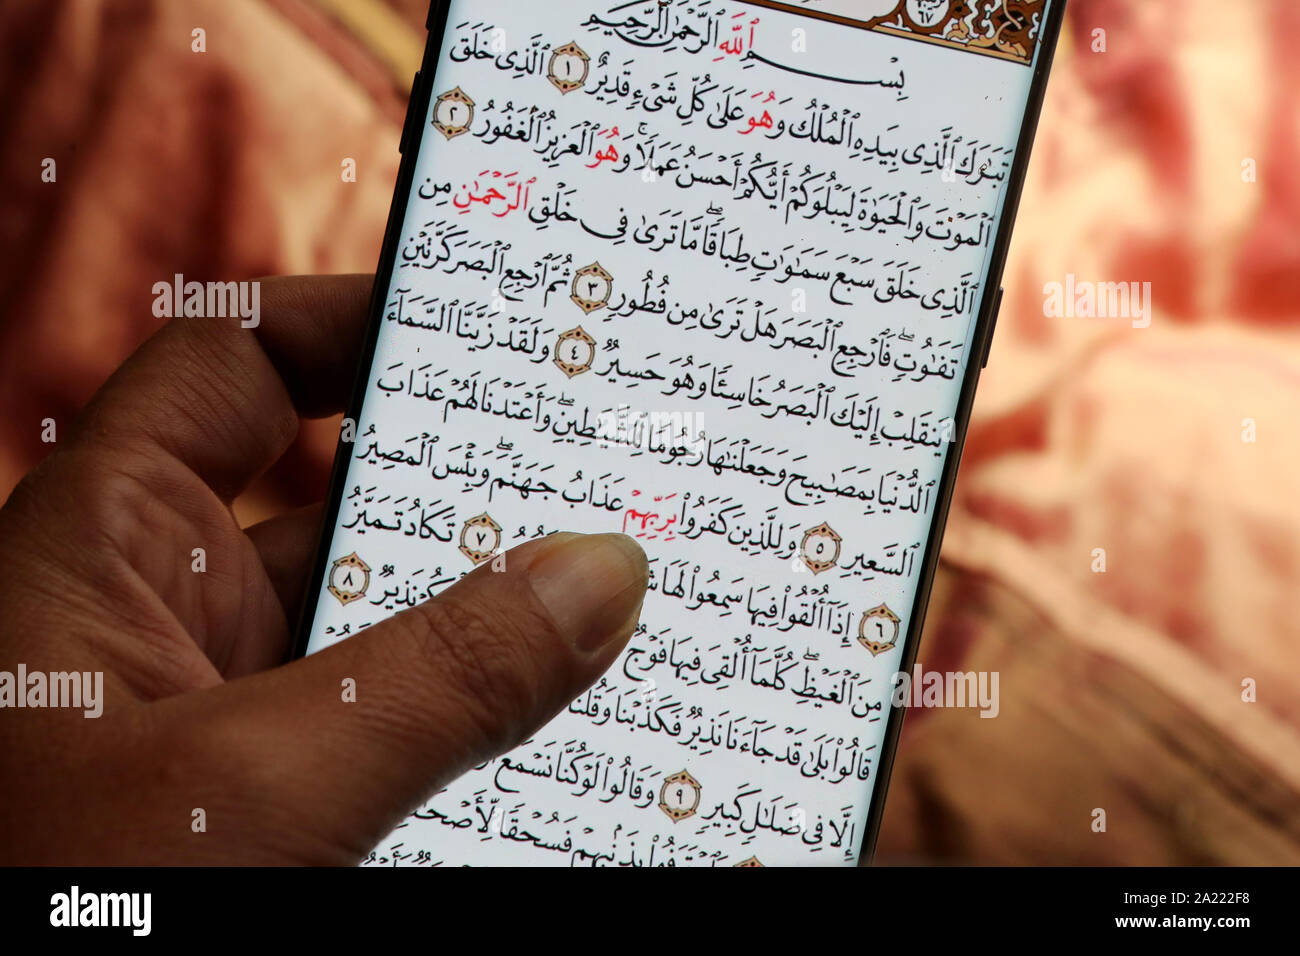 بِسْمِ ٱللَّهِ ٱلرَّحْمَٰنِ ٱلرَّحِيمِ
تَبَٰرَكَ ٱلَّذِى بِيَدِهِ ٱلْمُلْكُ وَهُوَ عَلَىٰ كُلِّ شَىْءٍ قَدِيرٌ ١ ٱلَّذِى خَلَقَ
ٱلْمَوْتَ وَٱلْحَيَوٰةَ لِيَبْلُوَكُمْ أَيُّكُمْ أَحْسَنُ عَمَلًا ۚ وَهُوَ ٱلْعَزِيزُ ٱلْغَفُورُ ٢
ٱلَّذِى خَلَقَ سَبْعَ سَمَٰوَٰتٍ طِبَاقًا ۖ مَّا تَرَىٰ فِى خَلْقِ ٱلرَّحْمَٰنِ مِن
تَفَٰوُتٍ ۖ فَٱرْجِعِ ٱلْبَصَرَ هَلْ تَرَىٰ مِن فُطُورٍ ٣ ثُمَّ ٱرْجِعِ ٱلْبَصَرَ كَرَّتَيْنِ
يَنقَلِبْ إِلَيْكَ ٱلْبَصَرُ خَاسِئًا وَهُوَ حَسِيرٌ ٤ وَلَقَدْ زَيَّنَّا ٱلسَّمَآءَ
ٱلدُّنْيَا بِمَصَٰبِيحَ وَجَعَلْنَٰهَا رُجُومًا لِّلشَّيَٰطِينِ ۖ وَأَعْتَدْنَا لَهُمْ عَذَابَ
ٱلسَّعِيرِ ٥ وَلِلَّذِينَ كَفَرُوا۟ بِرَبِّهِمْ عَذَابُ جَهَنَّمَ ۖ وَبِئْسَ ٱلْمَصِيرُ
٦ إِذَآ أُلْقُوا۟ فِيهَا سَمِعُوا۟ لَهَا ٧ تَكَادُ تَمَيَّزُ
مِنَ ٱلْغَيْظِ ۖ كُلَّمَآ أُلْقِىَ فِيهَا فَوْجٌ نَذِيرٌ ٨
قَالُوا۟ بَلَىٰ قَدْ جَآءَنَا نَذِيرٌ فَكَذَّبْنَا وَقُلْنَا
إِلَّا فِى ضَلَٰلٍ كَبِيرٍ ٩ وَقَالُوا۟ لَوْ كُنَّا نَسْمَعُ
بِذَنۢبِهِمْ فَسُحْقًا لِّأَصْحَٰبِ
alamy
Image ID: 2A222F8
www.alamy.com